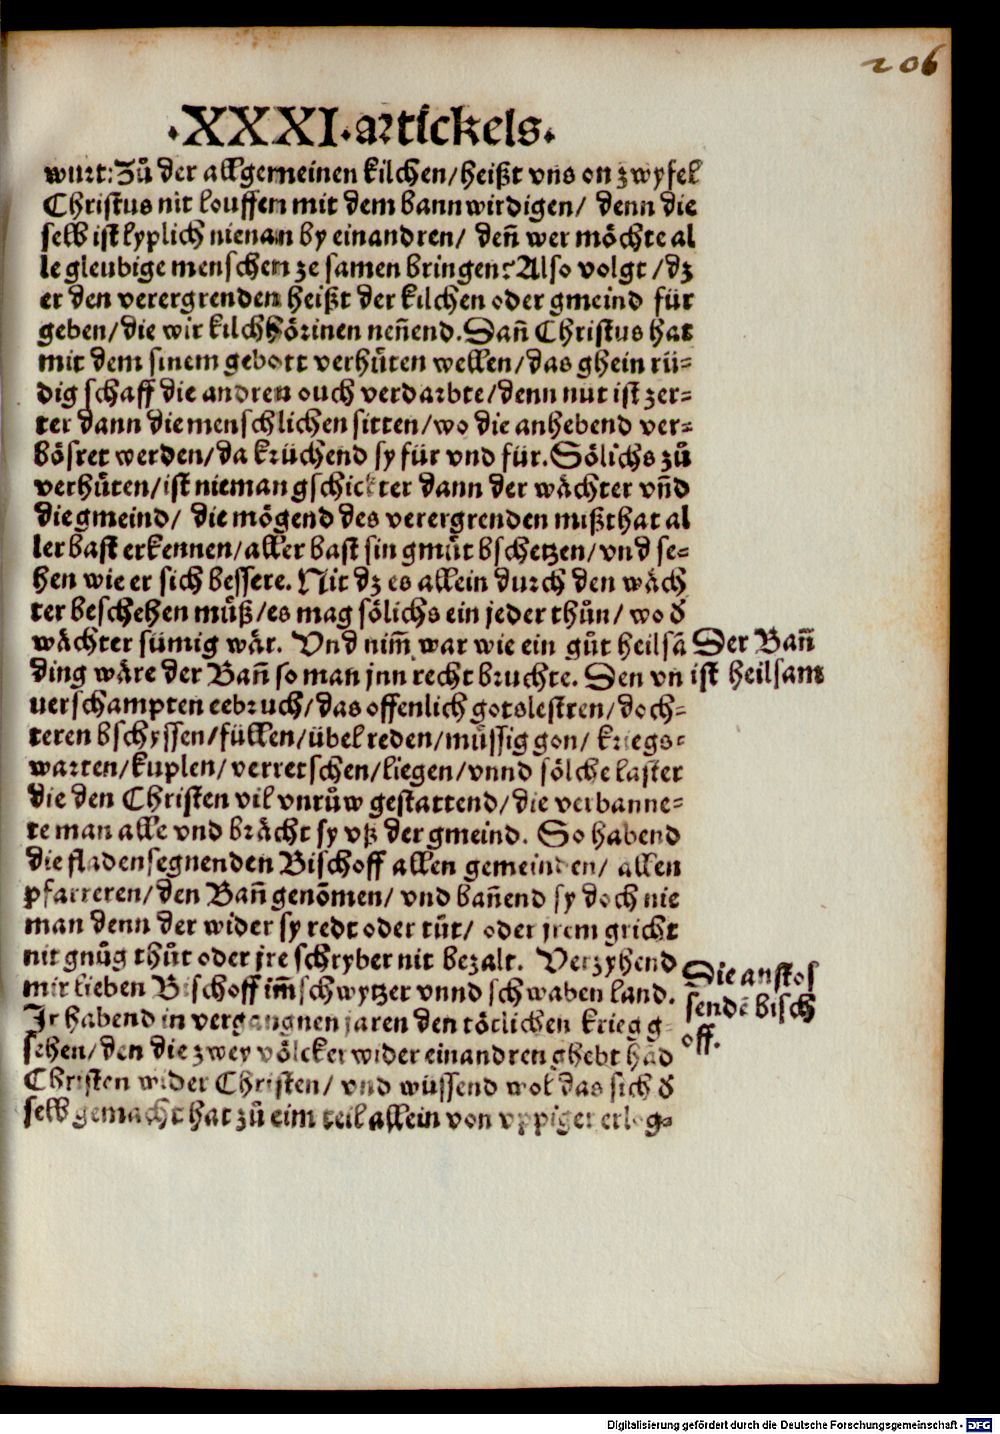 206
·XXXI·artickels·
wurt: Zů der allgemeinen kilchen/heißt vns on zwyfel
Christus nit louffen mit dem bannwirdigen/ denn die
selb ist lyplich nienan by einandren/ deñ wer möchte al
le gleubige menschen ze samen bringen? Also volgt/dz
er den verergrenden heißt der kilchen oder gmeind für
geben/die wir kilchhörinen neñend. Dañ Christus hat
mit dem sinem gebott verhüten wellen/das ghein rü⸗
dig schaff die andren ouch verdarbte/denn nüt ist zer⸗
ter dann die menschlichen sitten/wo die anhebend ver⸗
bösret werden/da krüchend sy für vnd für. Sölichs zů
verhüten/ist nieman gschickter dann der wächter vñd
die gmeind/ die mögend des verergrenden mißthat al
ler bast erkennen/aller bast sin gmüt bschetzen/vnd se⸗
hen wie er sich bessere. Nit dz es allein durch den wäch
ter beschehen müß/es mag sölichs ein jeder thůn/ wo d̕
wächter sümig wär. Vnd nim̃ war wie ein gůt heilsã
ding wäre der Bañ so man jnn recht bruchte. Den vn
uerschampten eebruch/das offenlich gotslestren/doch⸗
teren bschyssen/füllen/übel reden/müssig gon/ kriegs⸗
warten/kuplen/verretschen/liegen/vnnd sölche laster
die den Christen vil vnrůw gestattend/die verbanne⸗
te man alle vnd brächt sy vß der gmeind. So habend
die fladensegnenden Bischoff allen gemeinden/ allen
pfarreren/den Bañ genom̃en/ vnd bañend sy doch nie
man denn der wider sy redt oder tůt/ oder jrem gricht
nit gnůg thůt oder jre schryber nit bezalt. Verzyhend
mir lieben Bischoff im̃ schwytzer vnnd schwaben land.
Jr habend in vergangnen jaren den tötlichen krieg g⸗
sehen/den die zwey völcker wider einandren ghebt hãd
Christen wider Christen/ vnd wüssend wol das sich d̕
selb gemacht hat zů eim teil allein von vppiger erlog⸗
Der Bañ
ist heilsam
Die anstos
sendẽ bisch
off.
Digitalisierung gefördert durch die Deutsche Forschungsgemeinschaft - DFG